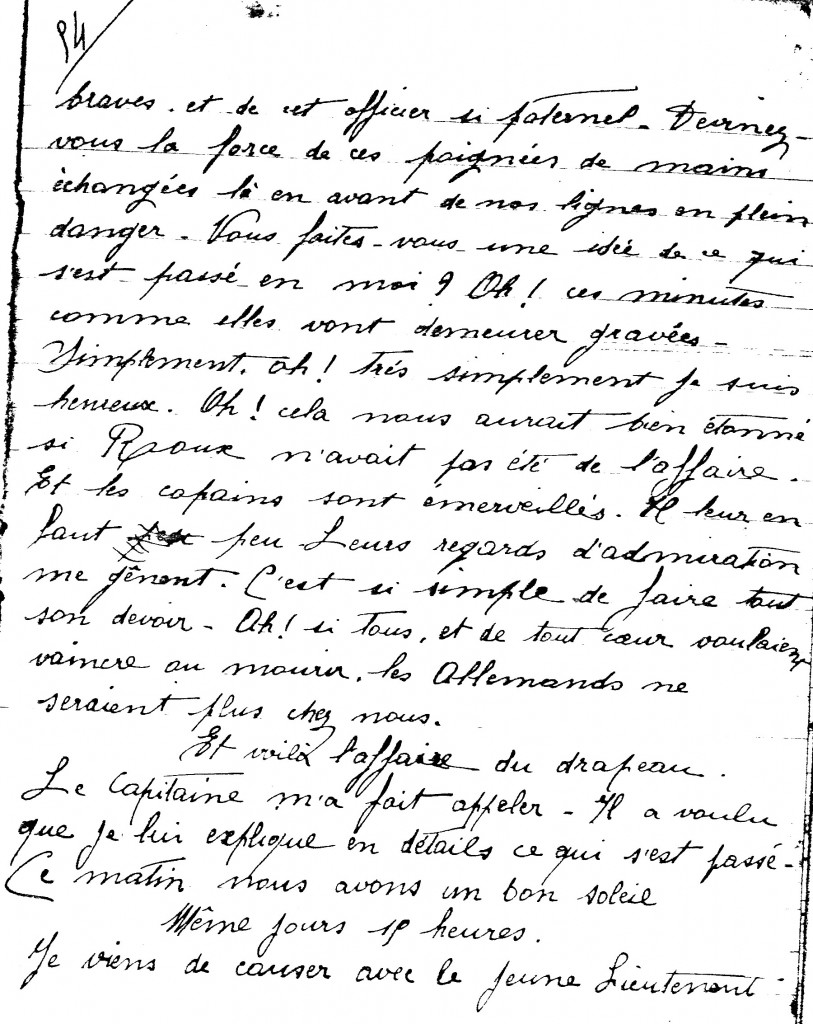 94
braves. et de cet officier si paternel. Devinez-
vous la force de ces poignées de mains
échangées là en avant de nos lignes en plein
danger - Vous faites-vous une idée de ce qui
s'est passé en moi ? Oh ! ces minutes
comme elles vont demeurer gravées -
Simplement, oh ! très simplement je suis
heureux. Oh ! cela nous aurait bien étonné
si Roux n'avait pas été de l'affaire.
Et les copains sont émerveillés. Il leur en
faut peu Leurs regards d'admiration
me gênent. C'est si simple de faire tout
son devoir - Ah ! si tous, et de tout cœur voulaient
vaincre ou mourir, les Allemands ne
seraient plus chez nous.
Et voilà l'affaire du drapeau.
Le Capitaine m'a fait appeler - Il a voulu
que je lui explique en détails ce qui s'est passé -
Ce matin nous avons un bon soleil
Même jours heures.
Je viens de causer avec le jeune Lieutenant